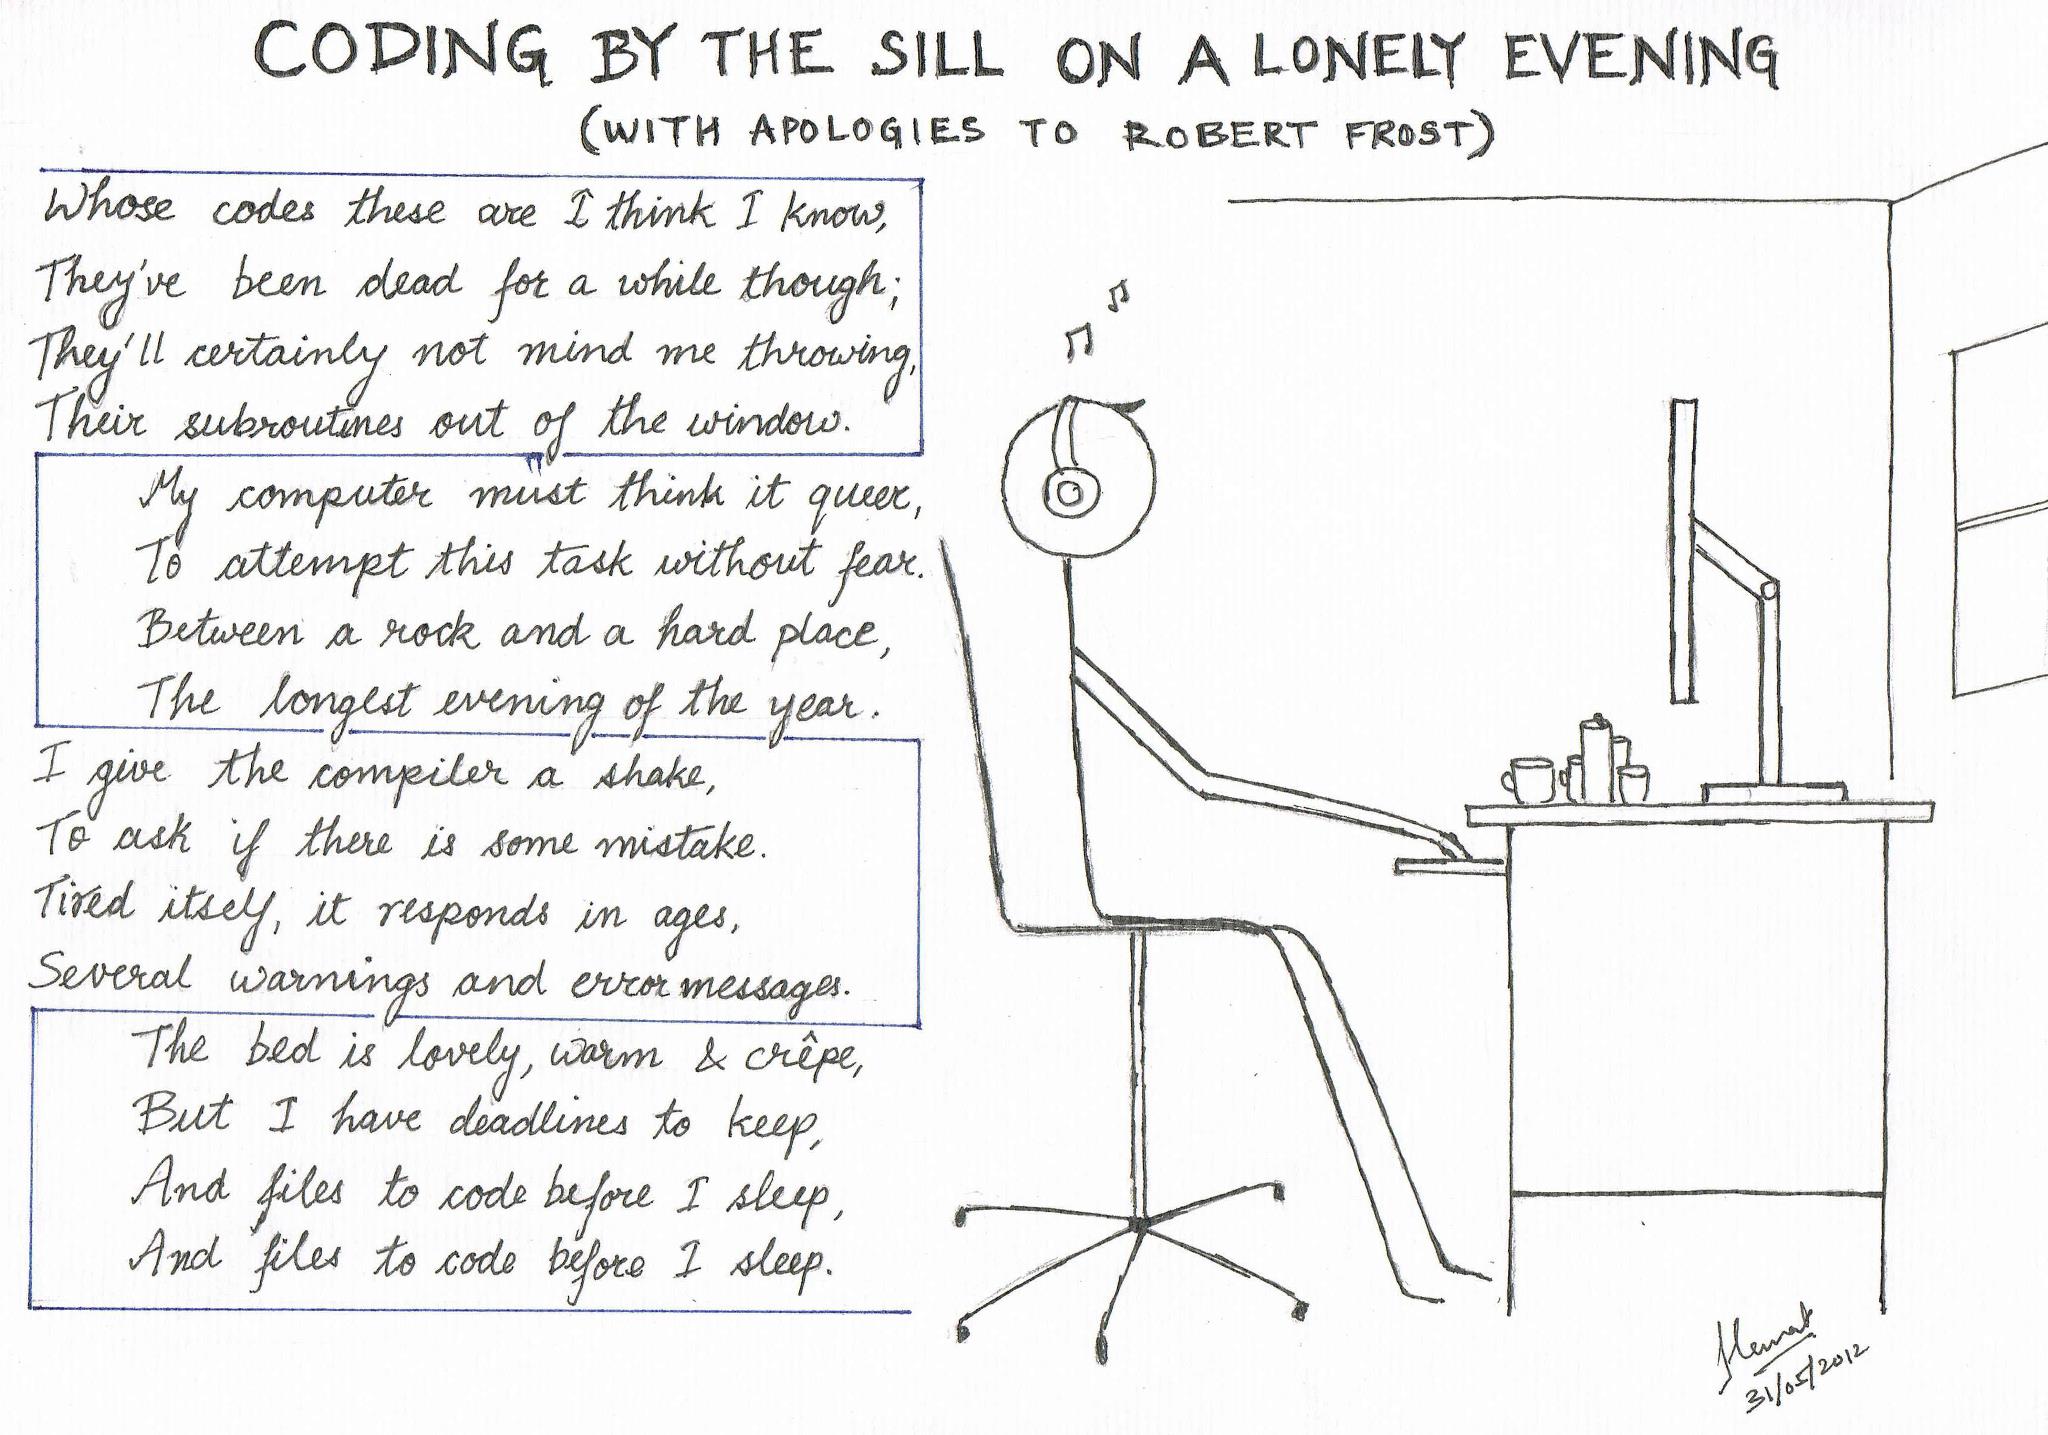 CODING BY THE SILL ON A LONELY EVENING
(WITH APOLOGIES TO ROBERT FROST)
Whose codes these are I think I know,
They've been dead for a while though;
They'll certainly not mind me throwing,
Their subroutines out of the window.
My computer must think it queer,
To attempt this task without fear.
Between a rock and a hard place,
The longest evening of the year.
I give the compiler a shake,
To ask if there is some mistake.
Tired itself, it responds in ages,
Several warnings and error messages.
The bed is lovely, warm & crêpe,
But I have deadlines to keep,
And files to code before I sleep,
And files to code before I sleep.
31/05/2012